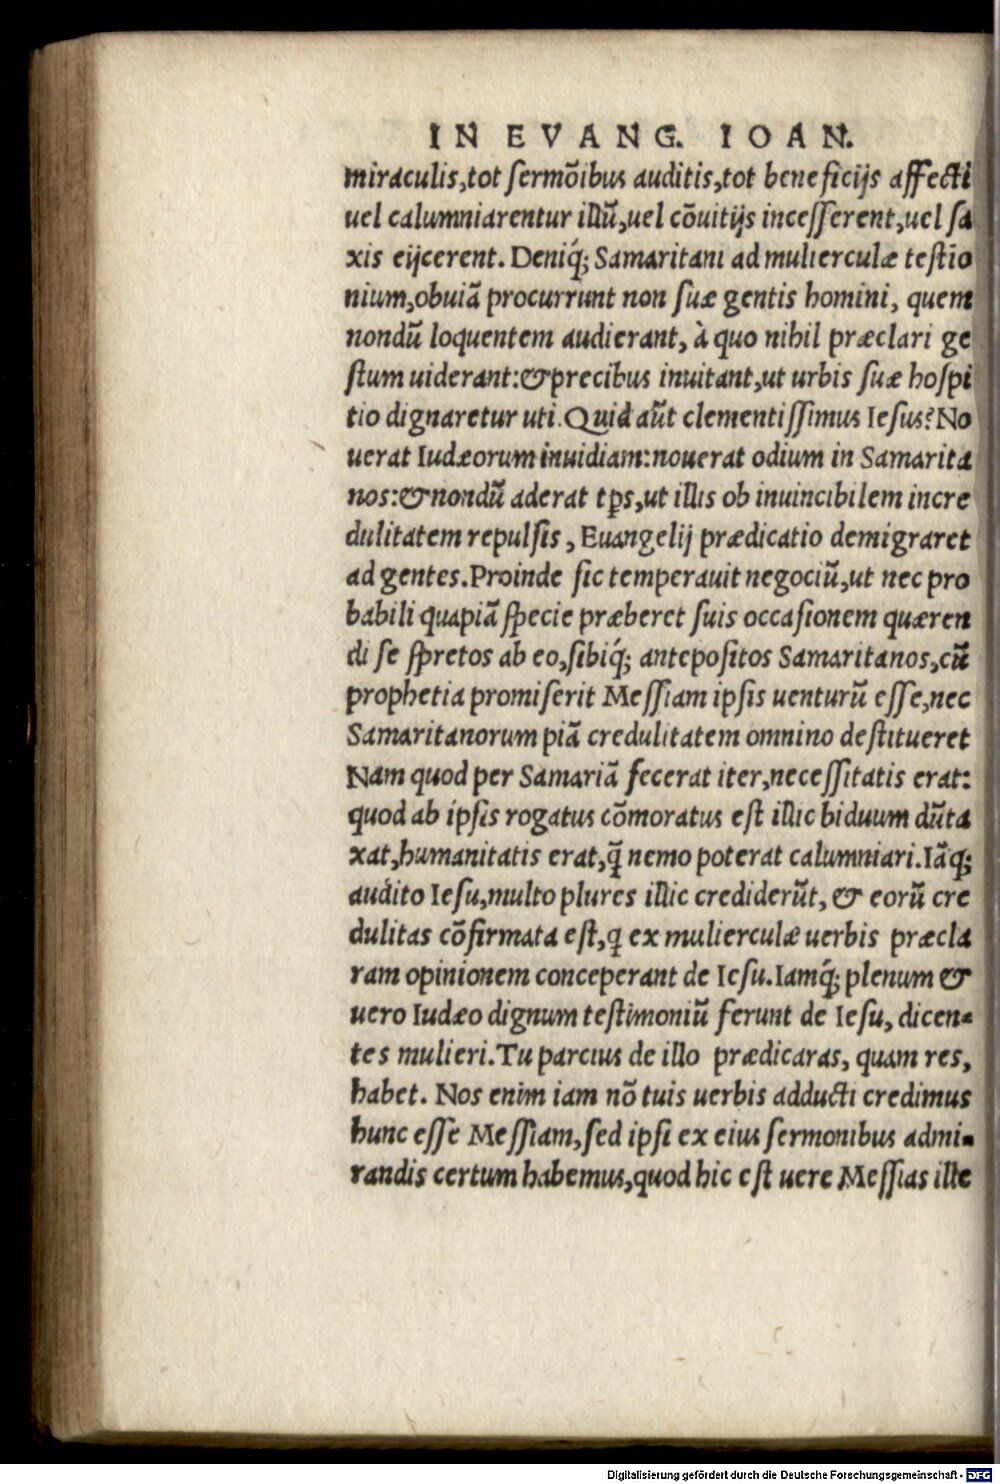 IN EVANG. IOAN.
miraculis,tot ſermõibus auditis,tot beneficijs affecti
uel calumniarentur illũ,uel cõuitijs inceſſerent,uel ſa
xis eijcerent. Deniq́; Samaritani ad mulierculæ teſtĩo
nium,obuiã procurrunt non ſuæ gentis homini, quem
nondũ loquentem audierant, à quo nihil præclari ge
ſtum uiderant:&precibus inuitant,ut urbis ſuæ hoſpi
tio dignaretur uti.Quid aũt clementiſſimus Ieſus?No
uerat Iudæorum inuidiam:nouerat odium in Samarita
nos:&nondũ aderat tꝑs,ut illis ob inuincibilem incre
dulitatem repulſis, Euangelij prædicatio demigraret
ad gentes.Proinde ſic temperauit negociũ,ut nec pro
babili quapiã ſpecie præberet ſuis occaſionem quæren
di ſe ſpretos ab eo,ſibiq́; antepoſitos Samaritanos,cũ
prophetia promiſerit Meſſiam ipſis uenturũ eſſe,nec
Samaritanorum piã credulitatem omnino deſtitueret
Nam quod per Samariã fecerat iter,neceſſitatis erat:
quod ab ipſis rogatus cõmoratus eſt illic biduum dũta
xat,humanitatis erat,q̃ nemo poterat calumniari.Iãq;
audito Ieſu,multo plures illic crediderũt, & eorũ cre
dulitas cõfirmata eſt,q ex mulierculæ uerbis præcla
ram opinionem conceperant de Ieſu.Iamq́; plenum &
uero Iudæo dignum teſtimoniũ ferunt de Ieſu, dicen-
tes mulieri.Tu parcius de illo prædicaras, quam res,
habet. Nos enim iam nõ tuis uerbis adducti credimus
hunc eſſe Meſſiam,ſed ipſi ex eius ſermonibus admi-
randis certum habemus,quod hic eſt uere Meſſias ille
Digitalisierung gefördert durch die Deutsche Forschungsgemeinschaft - DFG